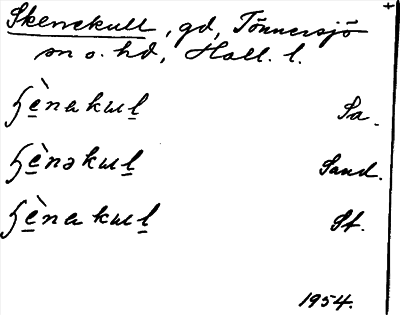 Skenekull, gd, Tönnersjö
sn o. hd, Hall. l.
ʃè̱nakuḻ Sa.
ʃè̱nəkuḻ Sand.
ʃè̱nakuḻ St.
1954.